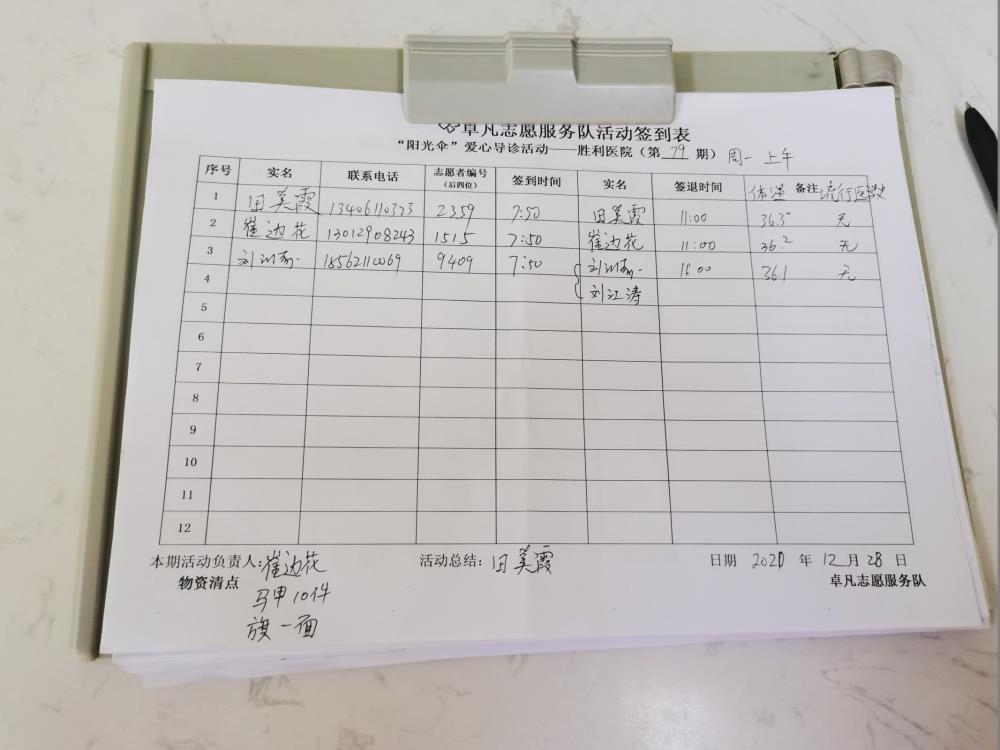 卓凡志愿服务队活动签到表
“阳光伞”爱心导诊活动——胜利医院（第 79 期） 周一 上午
序号 实名 联系电话 志愿者编号（后四位） 签到时间 实名 签退时间 体温 备注 流行区
1 田美霞 13406110323 2359 7:50 田美霞 11:00 36.5 无
2 崔边花 13012908243 1515 7:50 崔边花 11:00 36.2 无
3 刘 18562110069 9409 7:50 刘 00 36.1 无
4 刘江涛
5
6
7
8
9
10
11
12
本期活动负责人：崔边花 活动总结：田美霞 日期 2020 年 12 月 28 日
物资清点 卓凡志愿服务队
马甲10件
旗一面